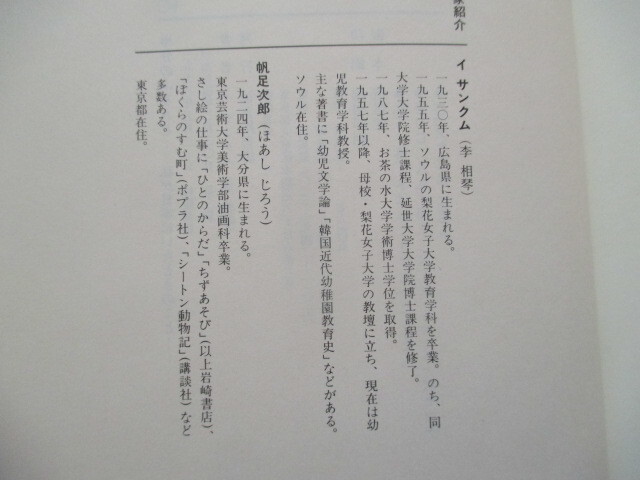 家紹介
イ サンクム（李 相琴）
一九三〇年、広島県に生まれる。
一九五五年、ソウルの梨花女子大学教育学科を卒業。のち、同
大学大学院修士課程、延世大学大学院博士課程を修了。
一九八七年、お茶の水大学学術博士学位を取得。
一九五七年以降、母校・梨花女子大学の教壇に立ち、現在は幼
児教育学科教授。
主な著書に「幼児文学論」「韓国近代幼稚園教育史」などがある。
ソウル在住。
帆足次郎（ほあし じろう）
一九二四年、大分県に生まれる。
東京芸術大学美術学部油画科卒業。
さし絵の仕事に「ひとのからだ」「ちずあそび」（以上岩崎書店）、
「ぼくらのすむ町」（ポプラ社）、「シートン動物記」（講談社）など
多数ある。
東京都在住。